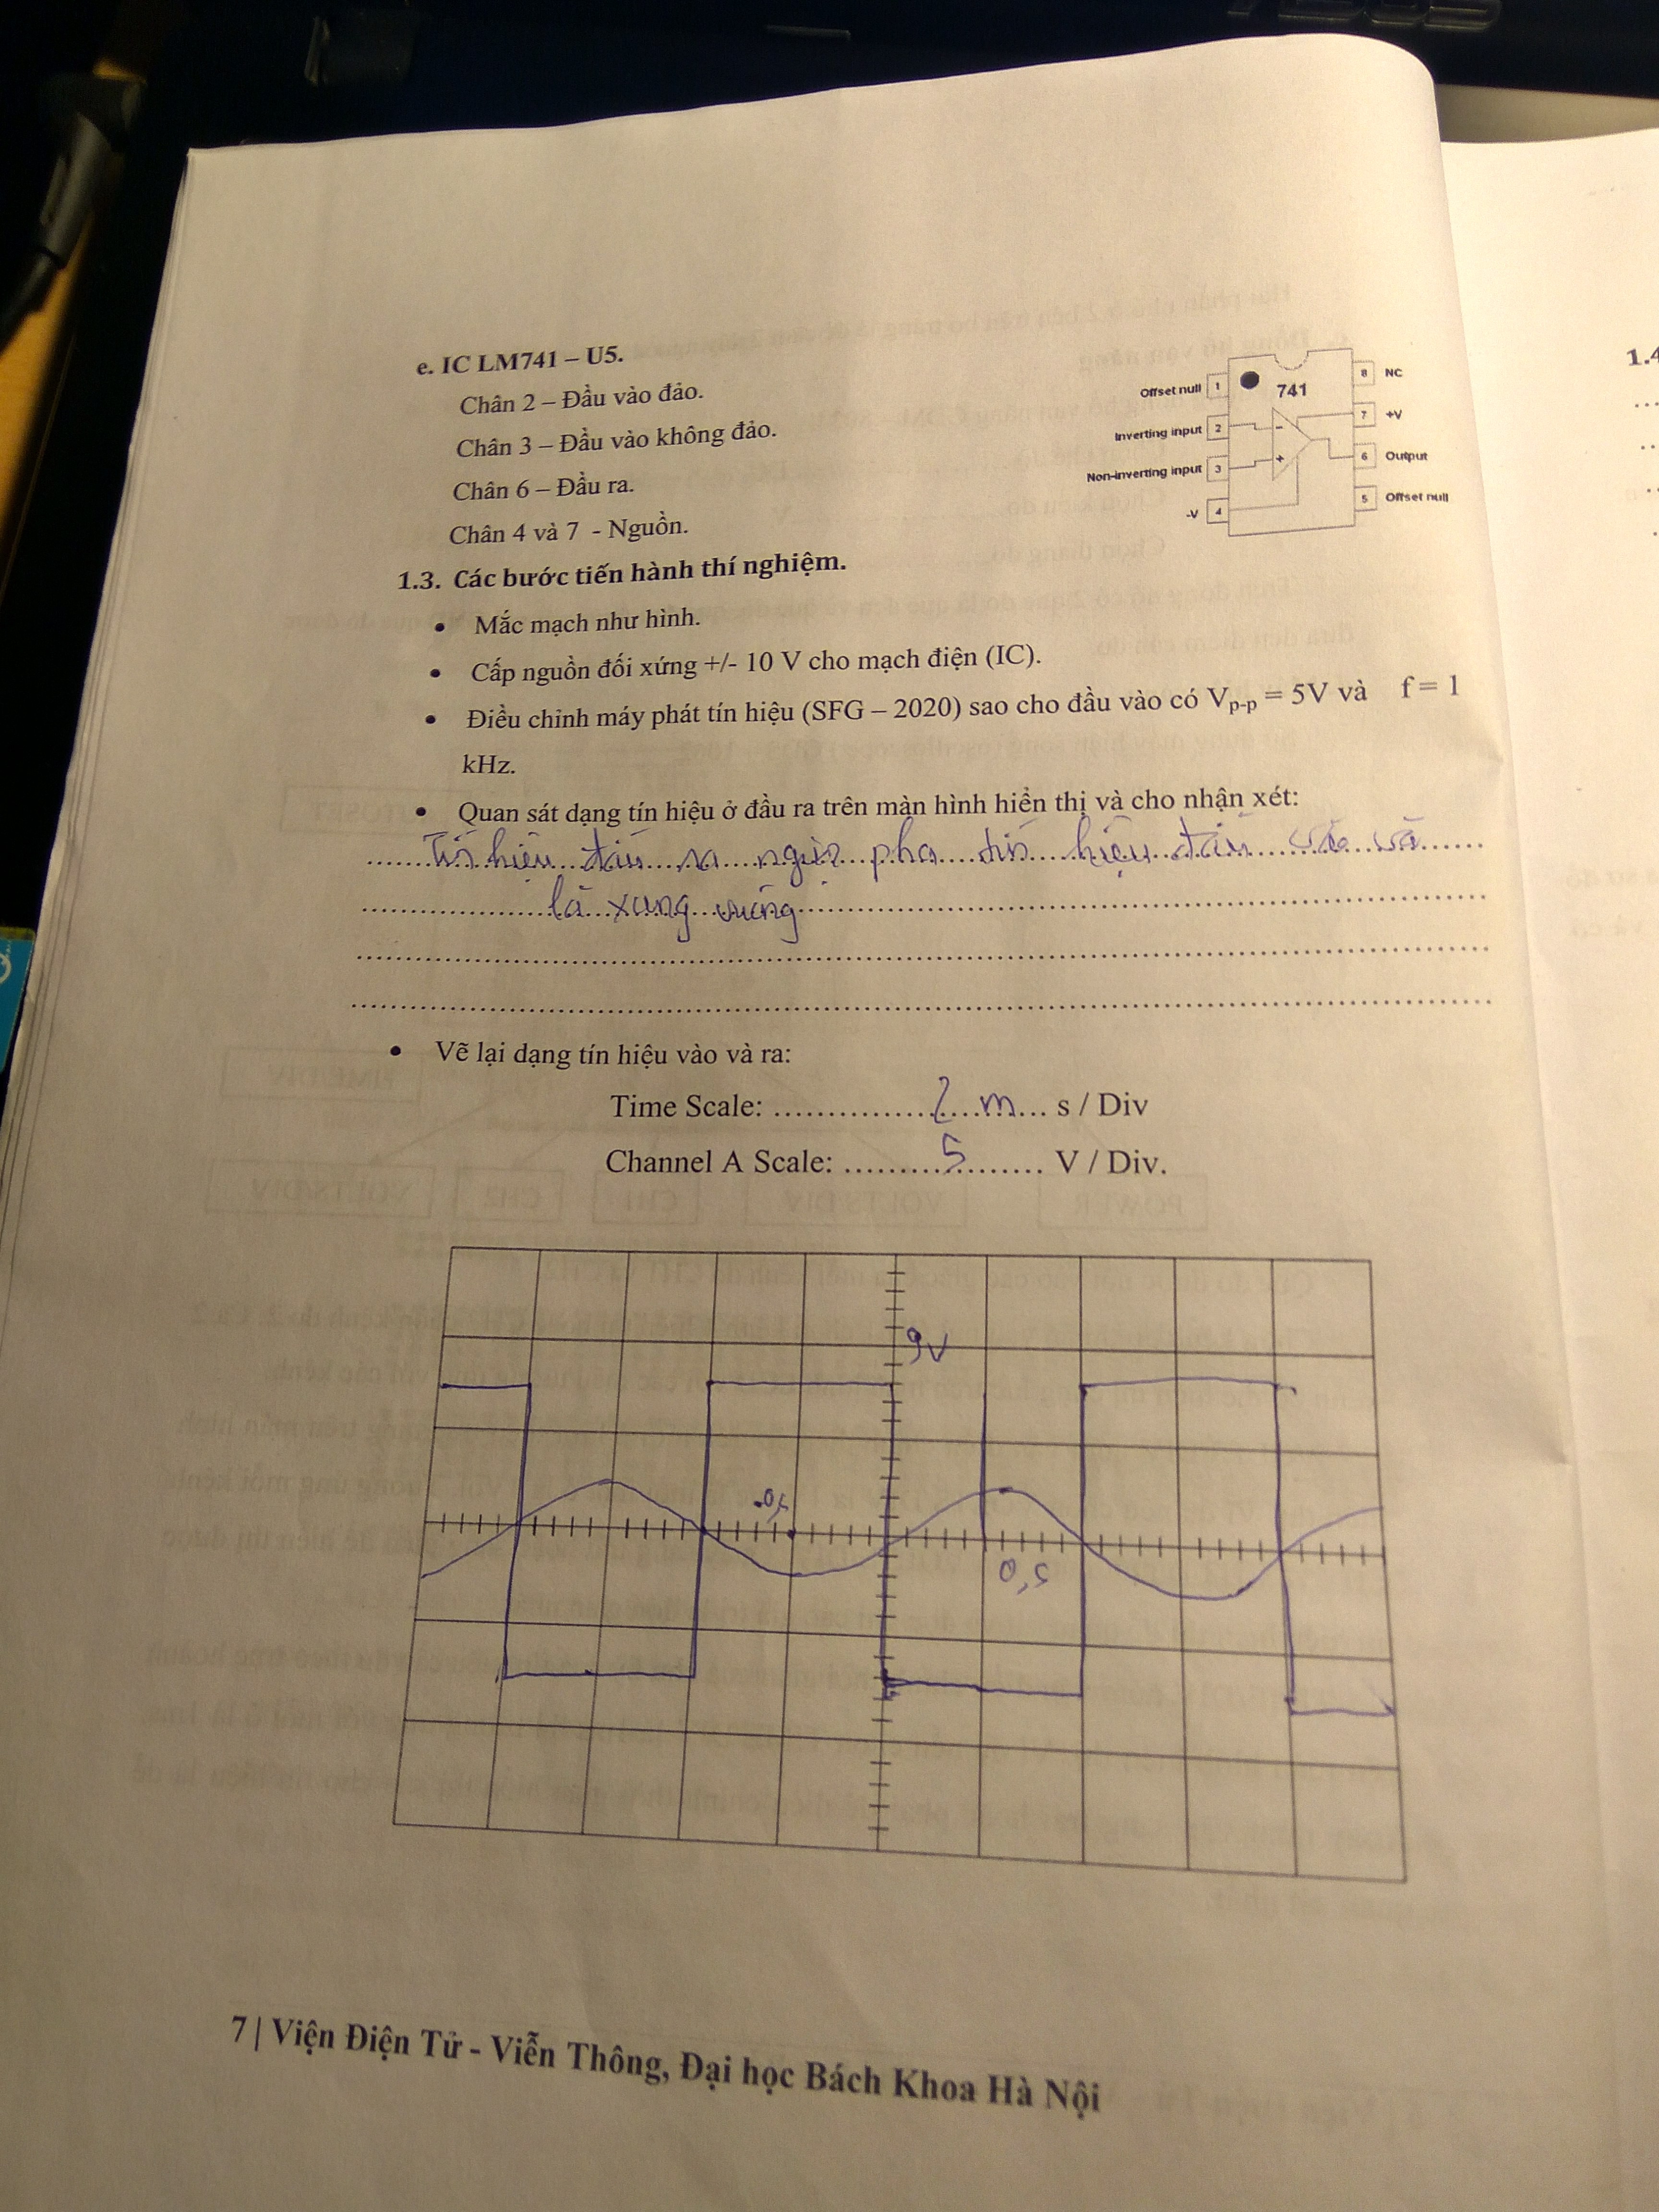 e. IC LM741 – U5.
Chân 2 – Đầu vào đảo.
Chân 3 – Đầu vào không đảo.
Chân 6 – Đầu ra.
Chân 4 và 7 - Nguồn.
Offset null 1
Inverting input 2
Non-inverting input 3
-V 4
741
- 
+
8 NC
7 +V
6 Output
5 Offset null
1.3. Các bước tiến hành thí nghiệm.
• Mắc mạch như hình.
• Cấp nguồn đối xứng +/- 10 V cho mạch điện (IC).
• Điều chỉnh máy phát tín hiệu (SFG – 2020) sao cho đầu vào có Vp-p = 5V và f = 1
kHz.
• Quan sát dạng tín hiệu ở đầu ra trên màn hình hiển thị và cho nhận xét:
Tín hiệu đầu ra ngược pha tín hiệu đầu vào và
là xung vuông
• Vẽ lại dạng tín hiệu vào và ra:
Time Scale: 2 m s / Div
Channel A Scale: 5 V / Div.
0,5
7 | Viện Điện Tử - Viễn Thông, Đại học Bách Khoa Hà Nội
1.4